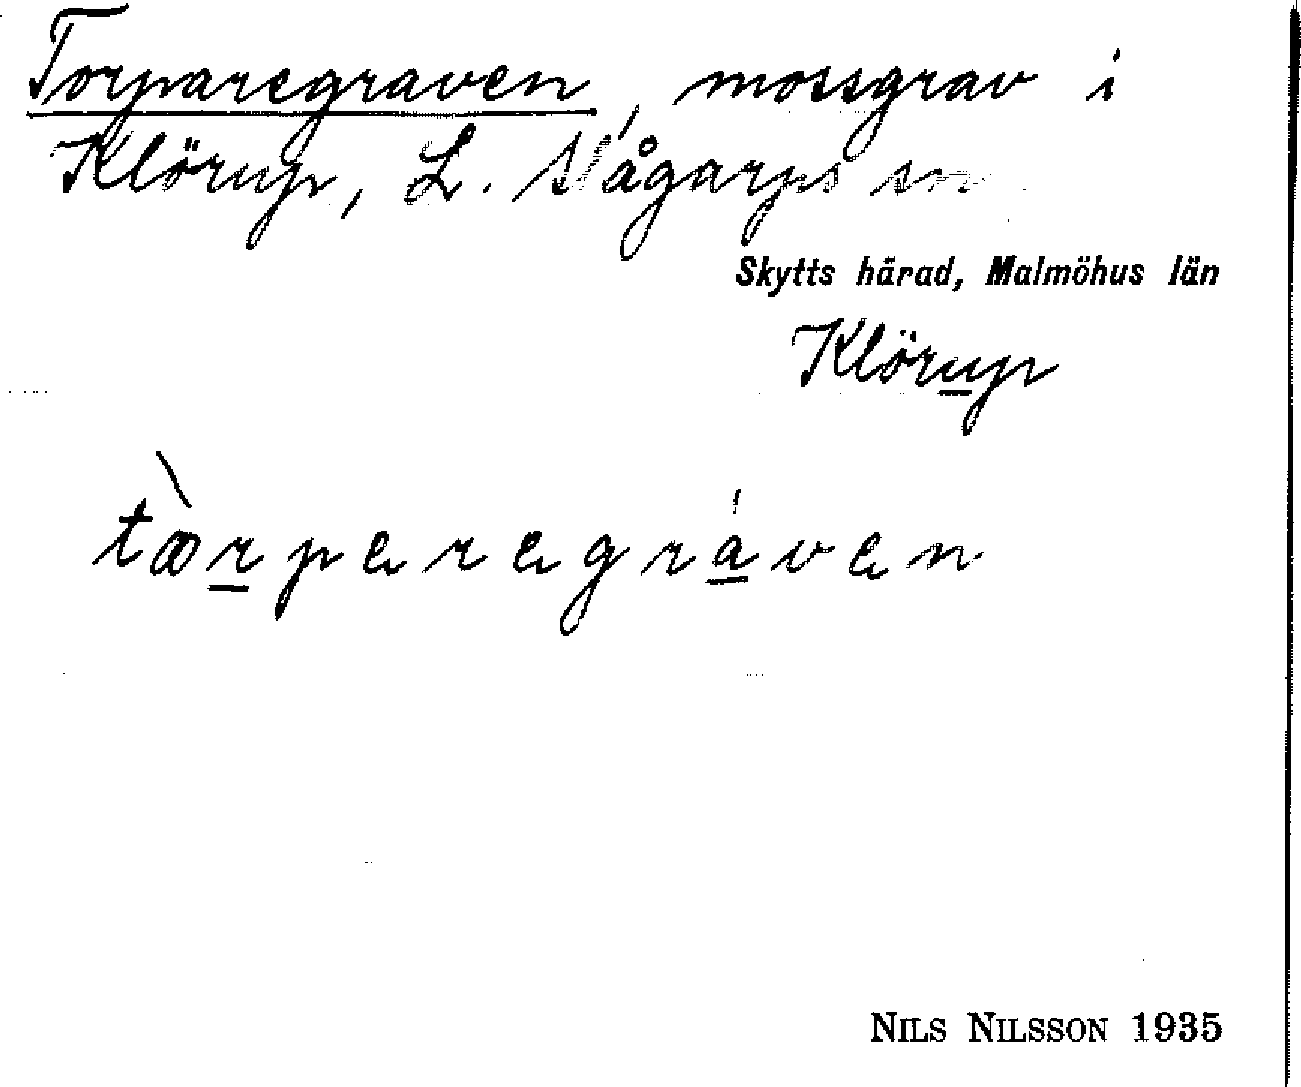 Torparegraven, mossgrav i
Klörup, L. Slågarps sn
Skytts härad, Malmöhus län
Klörup
tòrperegráven
NILS NILSSON 1935